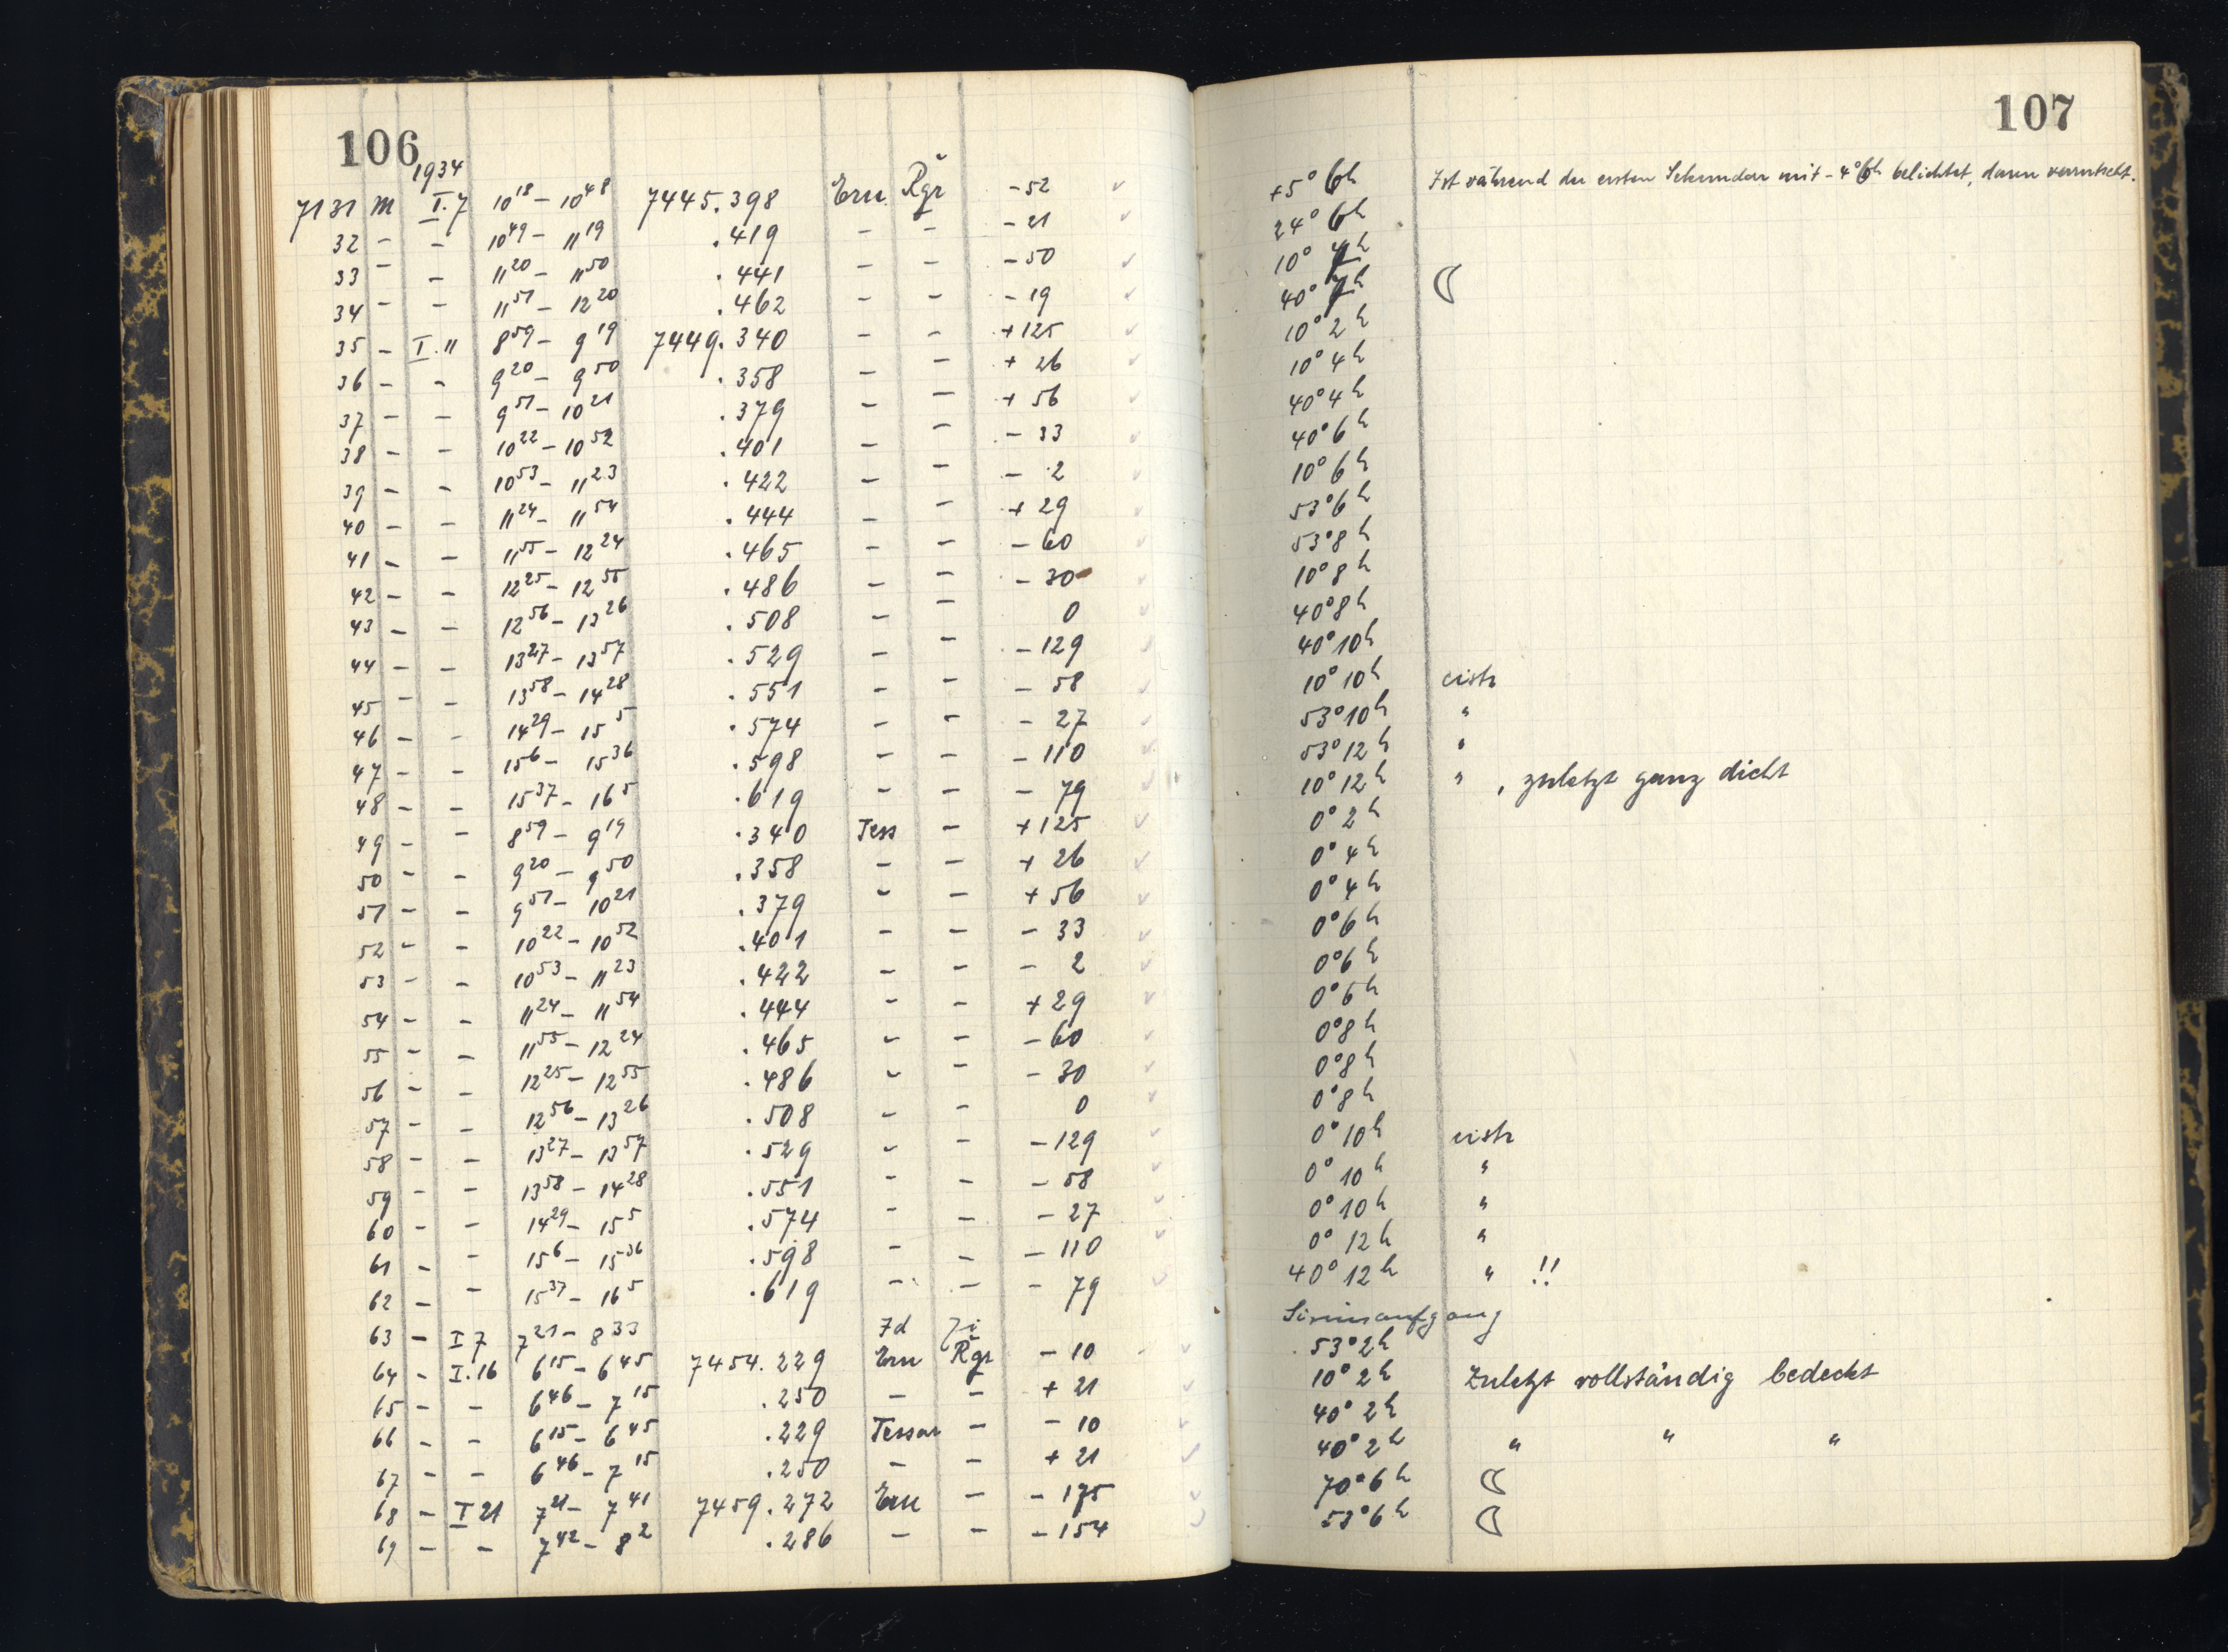 106
1934
7131 M I.7 10¹⁸ – 10⁴⁸ 7445.398 Ern. Rgr – 52 ✓
32 – – 10⁴⁹ – 11¹⁹ .419 – – – 21 ✓
33 – – 11²⁰ – 11⁵⁰ .441 – – – 50 ✓
34 – – 11⁵¹ – 12²⁰ .462 – – – 19 ✓
35 – I.11 8⁵⁹ – 9¹⁹ 7449.340 – – + 125 ✓
36 – – 9²⁰ – 9⁵⁰ .358 – – + 26 ✓
37 – – 9⁵¹ – 10²¹ .379 – – + 56 ✓
38 – – 10²² – 10⁵² .401 – – – 33 ✓
39 – – 10⁵³ – 11²³ .422 – – – 2 ✓
40 – – 11²⁴ – 11⁵⁴ .444 – – + 29 ✓
41 – – 11⁵⁵ – 12²⁴ .465 – – – 60 ✓
42 – – 12²⁵ – 12⁵⁵ .486 – – – 30 ✓
43 – – 12⁵⁶ – 13²⁶ .508 – – 0 ✓
44 – – 13²⁷ – 13⁵⁷ .529 – – – 129 ✓
45 – – 13⁵⁸ – 14²⁸ .551 – – – 58 ✓
46 – – 14²⁹ – 15⁵ .574 – – – 27 ✓
47 – – 15⁶ – 15³⁶ .598 – – – 110 ✓
48 – – 15³⁷ – 16⁵ .619 – – – 79 ✓
49 – – 8⁵⁹ – 9¹⁹ .340 Tess – + 125 ✓
50 – – 9²⁰ – 9⁵⁰ .358 – – + 26 ✓
51 – – 9⁵¹ – 10²¹ .379 – – + 56 ✓
52 – – 10²² – 10⁵² .401 – – – 33 ✓
53 – – 10⁵³ – 11²³ .422 – – – 2 ✓
54 – – 11²⁴ – 11⁵⁴ .444 – – + 29 ✓
55 – – 11⁵⁵ – 12²⁴ .465 – – – 60 ✓
56 – – 12²⁵ – 12⁵⁵ .486 – – – 30 ✓
57 – – 12⁵⁶ – 13²⁶ .508 – – 0 ✓
58 – – 13²⁷ – 13⁵⁷ .529 – – – 129 ✓
59 – – 13⁵⁸ – 14²⁸ .551 – – – 58 ✓
60 – – 14²⁹ – 15⁵ .574 – – – 27 ✓
61 – – 15⁶ – 15³⁶ .598 – – – 110 ✓
62 – – 15³⁷ – 16⁵ .619 – – – 79 ✓
63 – I 7 7²¹ – 8³³
64 – I.16 6¹⁵ – 6⁴⁵ 7454.229 Ern Rgr – 10 ✓
65 – – 6⁴⁶ – 7¹⁵ .250 – – + 21 ✓
66 – – 6¹⁵ – 6⁴⁵ .229 Tessar – – 10 ✓
67 – – 6⁴⁶ – 7¹⁵ .250 – – + 21 ✓
68 – I 21 7²¹ – 7⁴¹ 7459.272 Ern – – 175 ✓
69 – – 7⁴² – 8² .286 – – – 154 ✓
107
+5° 6h Ist während der ersten Sekunden mit – 4° 6h belichtet, dann verrutscht.
24° 6h
10° 4h
40° h
10° 2h
10° 4h
40° 4h
40° 6h
10° 6h
53° 6h
53° 8h
10° 8h
40° 8h
40° 10h
10° 10h cistr
53° 10h "
53° 12h "
10° 12h " , zuletzt ganz dicht
0° 2h
0° 4h
0° 4h
0° 6h
0° 6h
0° 6h
0° 8h
0° 8h
0° 8h
0° 10h cistr
0° 10h "
0° 10h "
0° 12h "
40° 12h " !!
Siriusaufgang
53° 2h
10° 2h Zuletzt vollständig bedeckt
40° 2h
40° 2h " " "
70° 6h ☾
53° 6h ☾